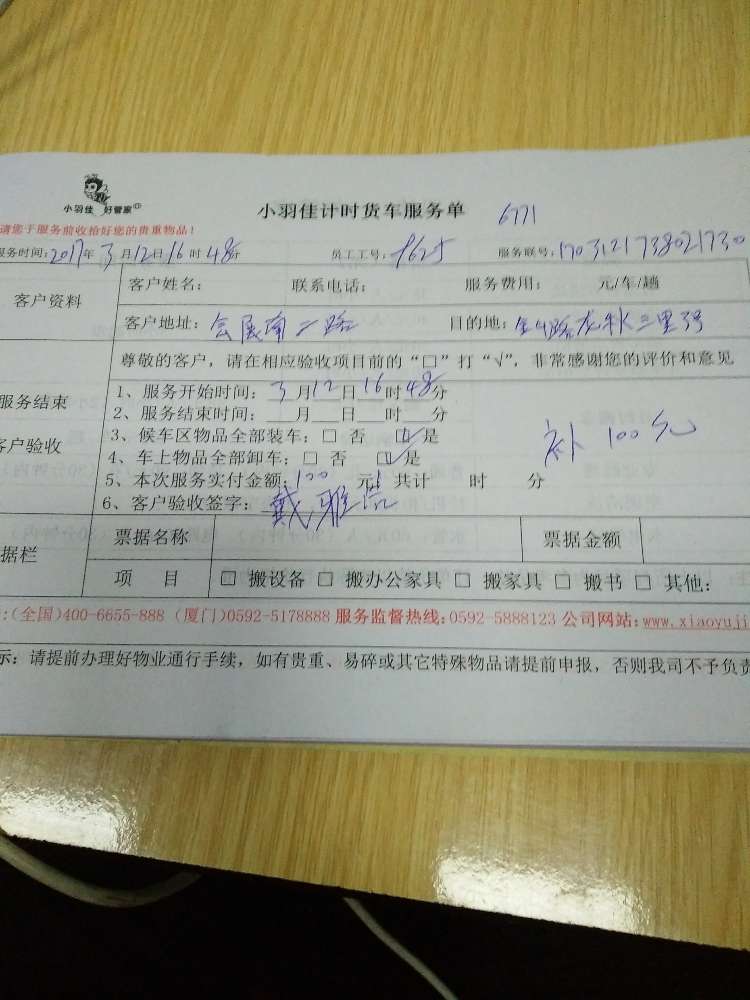 小羽佳 好管家
小羽佳计时货车服务单 6771
请您于服务前收拾好您的贵重物品!
服务时间:2017年3月12日16时48分 员工工号: 服务联号:1703121738021730
客户资料
客户姓名: 联系电话: 服务费用: 元/车/趟
客户地址:会展南二路 目的地:
尊敬的客户,请在相应验收项目前的“□”打“√”,非常感谢您的评价和意见
服务结束
客户验收
1、服务开始时间:3月12日16时48分
2、服务结束时间: 月 日 时 分
3、候车区物品全部装车:□ 否 ☑是
4、车上物品全部卸车:□ 否 ☑是
补 100元
5、本次服务实付金额:100 元,共计 时 分
6、客户验收签字:戴雅
据栏
票据名称 票据金额
项 目 □ 搬设备 □ 搬办公家具 □ 搬家具 □ 搬书 □ 其他:
:(全国)400-6655-888 (厦门)0592-5178888 服务监督热线:0592-5888123 公司网站:www.xiaoyuji
示:请提前办理好物业通行手续,如有贵重、易碎或其它特殊物品请提前申报,否则我司不予负责